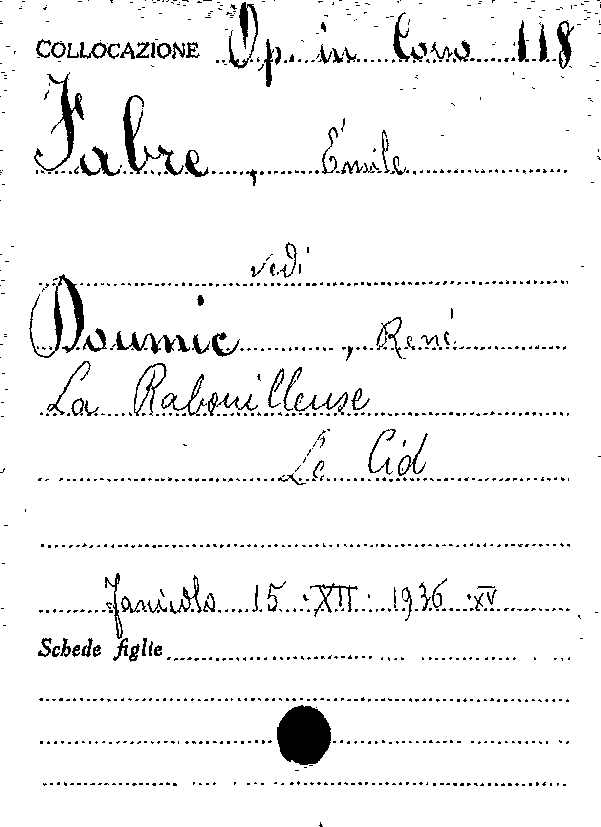 COLLOCAZIONE Op. in Corso 118
Fabre, Émile
vedi
Doumic, René
La Rabouilleuse
Le Cid
15 · XII · 1936 · XV
Schede figlie